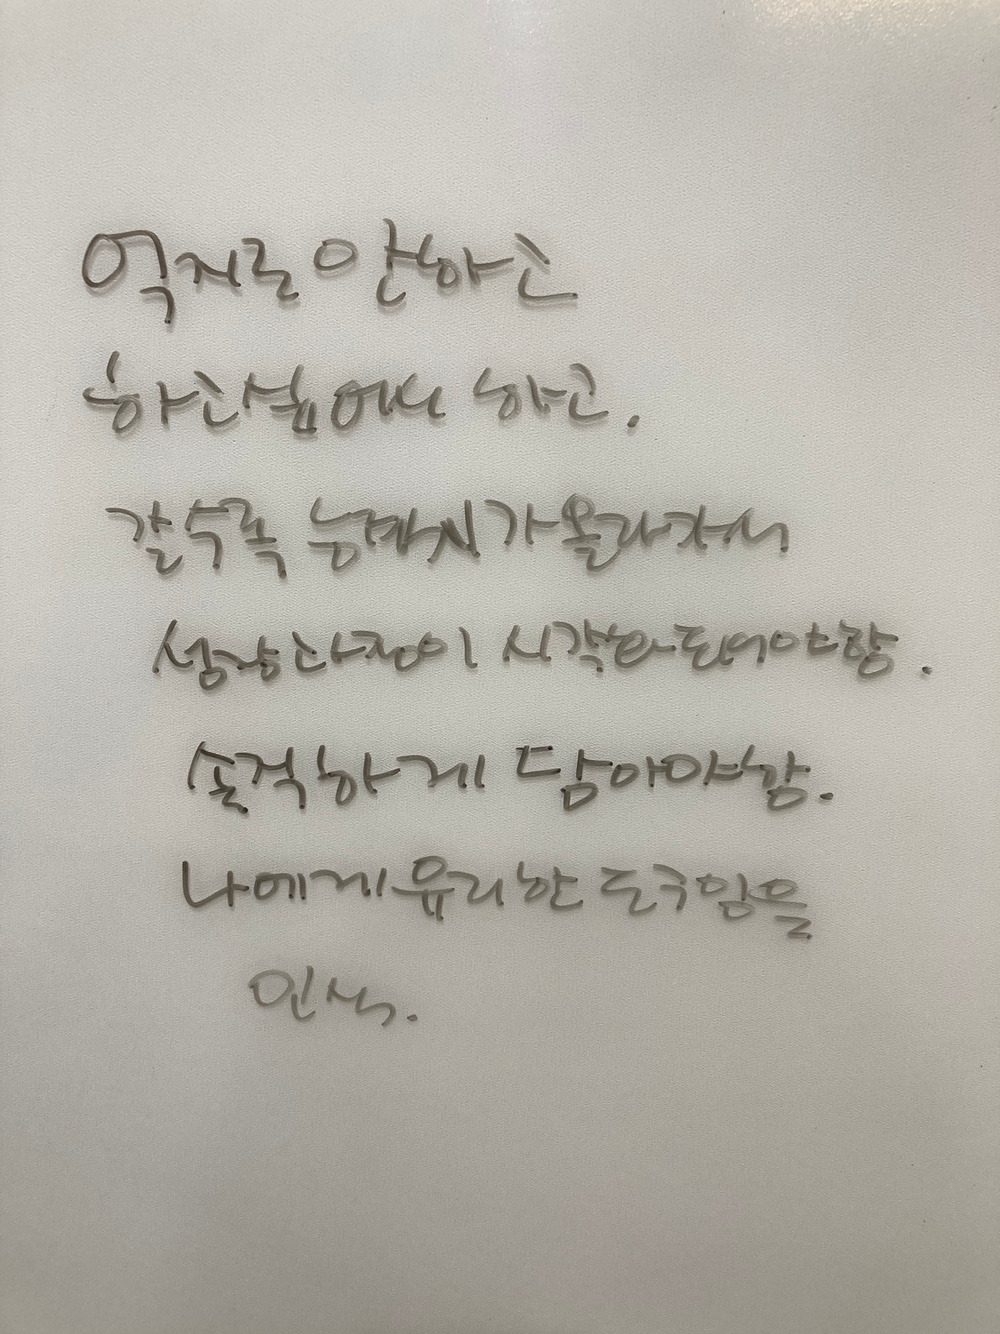 억지로 안하고
하고싶어서 하고.
갈수록 능력치가 올라가서
성장과정이 시각화되어야함.
솔직하게 담아야함.
나에게 유리한 도구임을
인식.